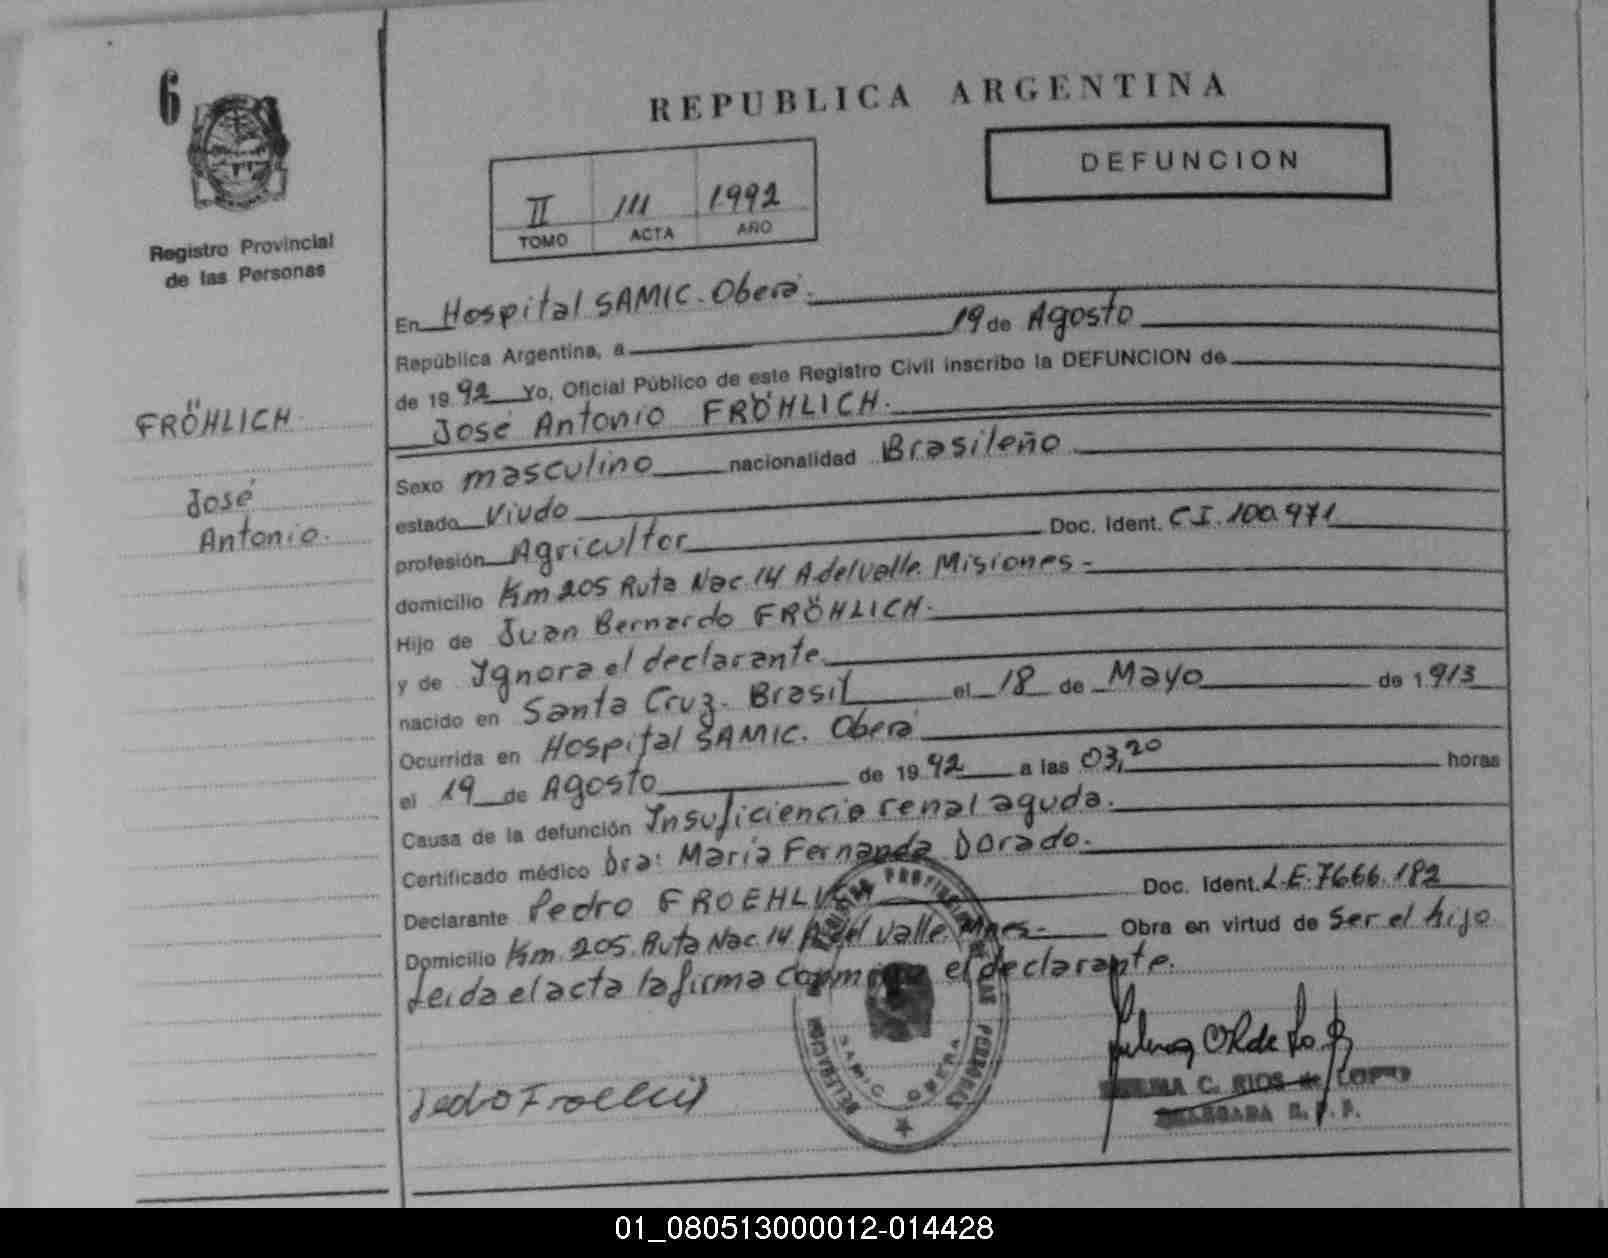 6
REPUBLICA ARGENTINA
DEFUNCION
II 111 1992
TOMO ACTA AÑO
Registro Provincial
de las Personas
FRÖHLICH
José
Antonio.
En Hospital SAMIC. Oberá.
República Argentina, a 19 de Agosto
de 1992 Yo, Oficial Público de este Registro Civil inscribo la DEFUNCION de
José Antonio FRÖHLICH.
Sexo masculino nacionalidad Brasileño
estado Viudo
profesión Agricultor Doc. Ident. C.I. 100.971
domicilio Km 205 Ruta Nac. 14 A. del Valle. Misiones -
Hijo de Juan Bernardo FRÖHLICH.
y de Ignora el declarante
nacido en Santa Cruz. Brasil el 18 de Mayo de 1913
Ocurrida en Hospital SAMIC. Oberá
el 19 de Agosto de 1992 a las 03,20 horas
Causa de la defunción Insuficiencia renal aguda.
Certificado médico Dra: María Fernanda Dorado.
Declarante Pedro FROEHLICH Doc. Ident. L.E. 7666.182
Domicilio Km. 205. Ruta Nac. 14 A. del Valle. Mnes- Obra en virtud de Ser el hijo
Leida el acta la firma conmigo el declarante.
REGISTRO PROVINCIAL DE LAS PERSONAS
DELEGACION
SAMIC OBERA
C. RIOS de LOPEZ
DELEGADA R. P. P.
01_080513000012-014428